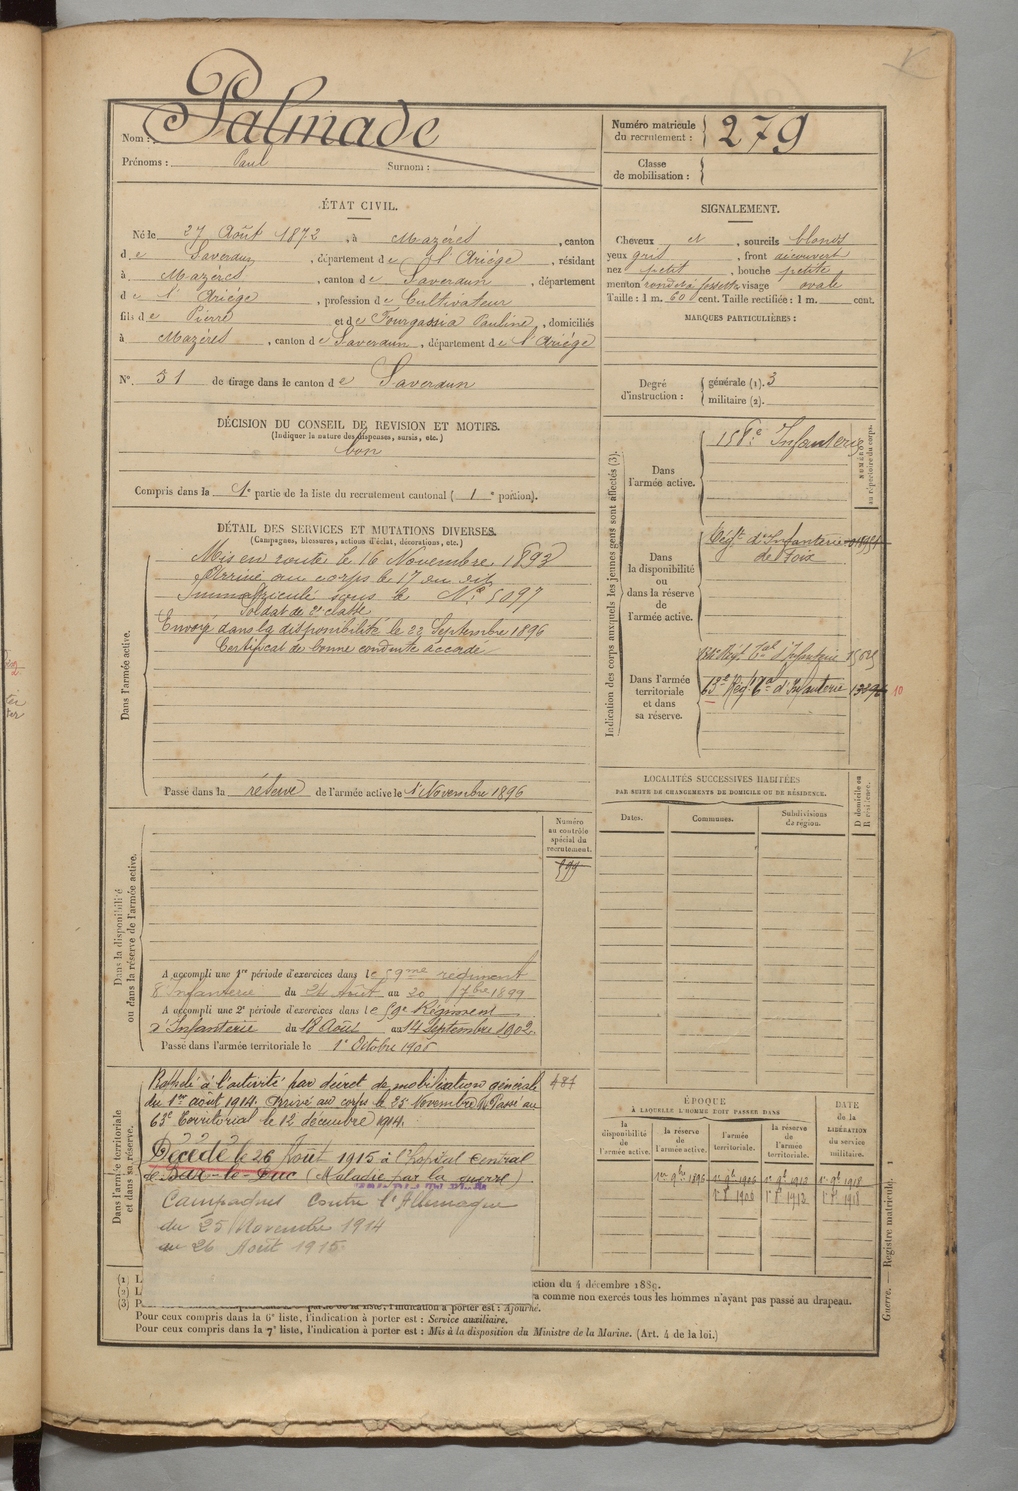 Nom : Palmade
Prénoms : Paul Surnom :
Numéro matricule du recrutement : 279
Classe de mobilisation :
ÉTAT CIVIL.
Né le 27 Août 1872, à Mazéres, canton
de Saverdun, département de l'Ariége, résidant
à Mazéres, canton de Saverdun, département
de l'Ariége, profession de Cultivateur
fils de Pierre et de Fourgassia Pauline, domiciliés
à Mazéres, canton de Saverdun, département de l'Ariége
N° 51 de tirage dans le canton de Saverdun
SIGNALEMENT.
Cheveux et, sourcils blonds
yeux gris, front découvert
nez petit, bouche petite
menton rond à fossette visage ovale
Taille : 1 m. 60 cent. Taille rectifiée : 1 m. cent.
MARQUES PARTICULIÈRES :
Degré d'instruction : générale (1). 3
militaire (2).
DÉCISION DU CONSEIL DE REVISION ET MOTIFS.
(Indiquer la nature des dispenses, sursis, etc.)
bon
Compris dans la 1e partie de la liste du recrutement cantonal ( 1e portion).
DÉTAIL DES SERVICES ET MUTATIONS DIVERSES.
(Campagnes, blessures, actions d'éclat, décorations, etc.)
Dans l'armée active.
Mis en route le 16 Novembre 1893
Arrivé au corps le 17 du dit
Immatriculé sous le N° 5097
Soldat de 2e classe
Envoyé dans la disponibilité le 23 Septembre 1896
Certificat de bonne conduite accordé
Passé dans la réserve de l'armée active le 1 Novembre 1896
Indication des corps auxquels les jeunes gens sont affectés (3).
NUMÉRO au répertoire du corps.
Dans l'armée active.
158e Infanterie
Dans la disponibilité ou dans la réserve de l'armée active.
Régt d'Infanterie
de Foix
Dans l'armée territoriale et dans sa réserve.
Régt Tal d'Infanterie
63e Régt d'Infanterie 10
LOCALITÉS SUCCESSIVES HABITÉES
PAR SUITE DE CHANGEMENTS DE DOMICILE OU DE RÉSIDENCE.
D domicile ou R résidence.
Dates. Communes. Subdivisions de région.
Dans la disponibilité ou dans la réserve de l'armée active.
Numéro au contrôle spécial du recrutement.
599
A accompli une 1re période d'exercices dans le 59me regiment
d'Infanterie du 24 Août au 20 7bre 1899
A accompli une 2e période d'exercices dans le 59e Régiment
d'Infanterie du 18 Août au 14 Septembre 1902
Passé dans l'armée territoriale le 1er Octobre 1906
Dans l'armée territoriale et dans sa réserve.
Rappelé à l'activité par décret de mobilisation générale 484
du 1er août 1914. Arrivé au corps le 25 Novembre 14 Passé au
63e Territorial le 12 décembre 1914.
Décédé le 26 Août 1915 à l'hopital central
de Bar-le-Duc (Maladie par la guerre)
Campagnes Contre l'Allemagne
du 25 Novembre 1914
au 26 Août 1915
ÉPOQUE
À LAQUELLE L'HOMME DOIT PASSER DANS
la disponibilité de l'armée active.
la réserve de l'armée active.
l'armée territoriale.
la réserve de l'armée territoriale.
DATE de la LIBÉRATION du service militaire.
1er 9bre 1896 1er 9bre 1906 1er 9bre 1912 1er 9bre 1918
1er 8bre 1906 1er 8bre 1912 1er 8bre 1918
(1) L
ction du 4 décembre 1889.
(2) L
a comme non exercés tous les hommes n'ayant pas passé au drapeau.
(3) P
de la liste, l'indication à porter est : Ajourné.
Pour ceux compris dans la 6e liste, l'indication à porter est : Service auxiliaire.
Pour ceux compris dans la 7e liste, l'indication à porter est : Mis à la disposition du Ministre de la Marine. (Art. 4 de la loi.)
Guerre. — Registre matricule. 1